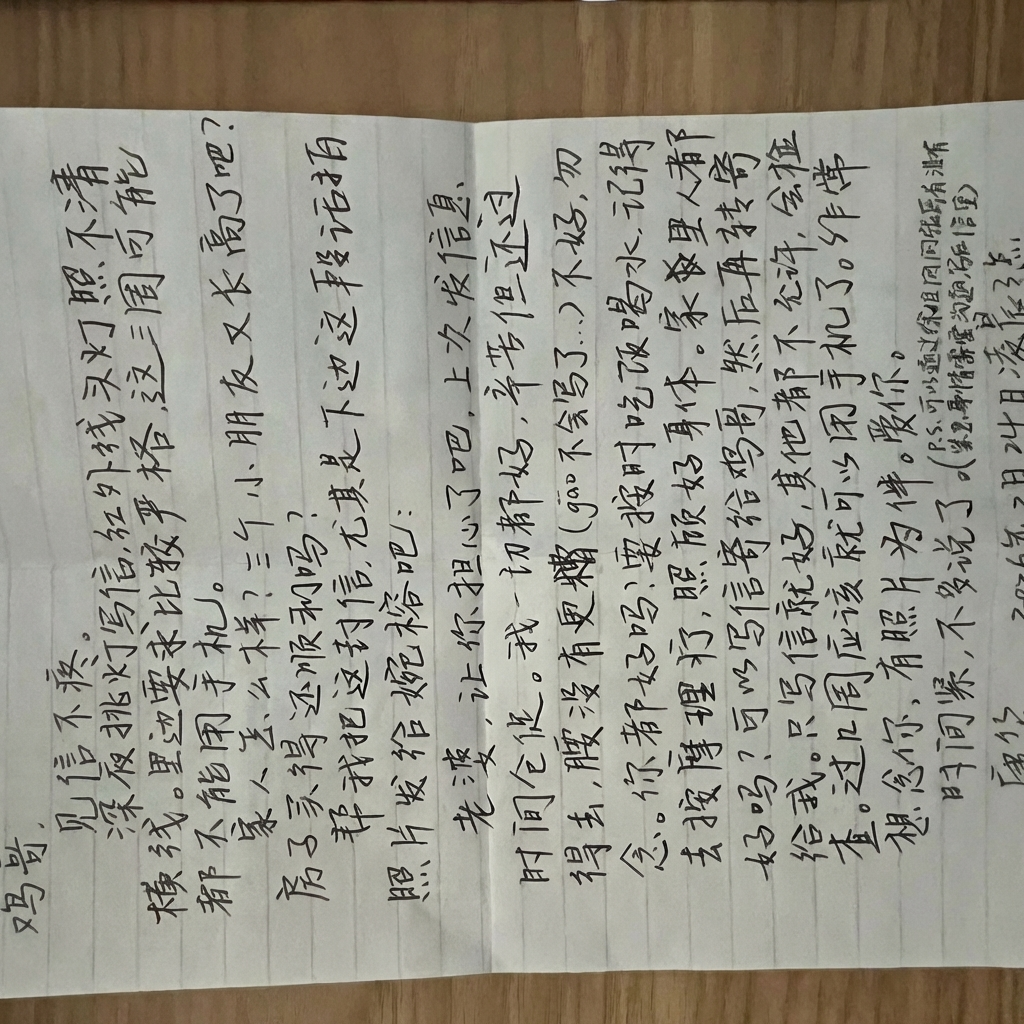 鸡哥.
见信不疼。
深夜挑灯写信,红外线头灯照不清
横线。里边要求比较严格,这三周可能
都不能用手机。
家人怎么样?三个小朋友又长高了吧?
房子买得还顺利吗?
帮我把这封信,尤其是下边这段话拍
照片发给婉榕吧:
老婆,让你担心了吧,上次发信息,
时间仓促。我一切都好,辛苦但还过
得去,腰没有更糟(gāo不会写了...)不好,勿
念。你都好吗?要按时吃饭喝水,记得
去按摩理疗,照顾好身体。家里人都
好吗?可以写信寄给鸡哥,然后再转寄
给我。只写信就好,其他都不允许,会检
查。过2周应该就可以用手机了。非常
想念你,有照片为伴。爱你。
时间紧,不多说了。
2026年2月24日凌晨3点